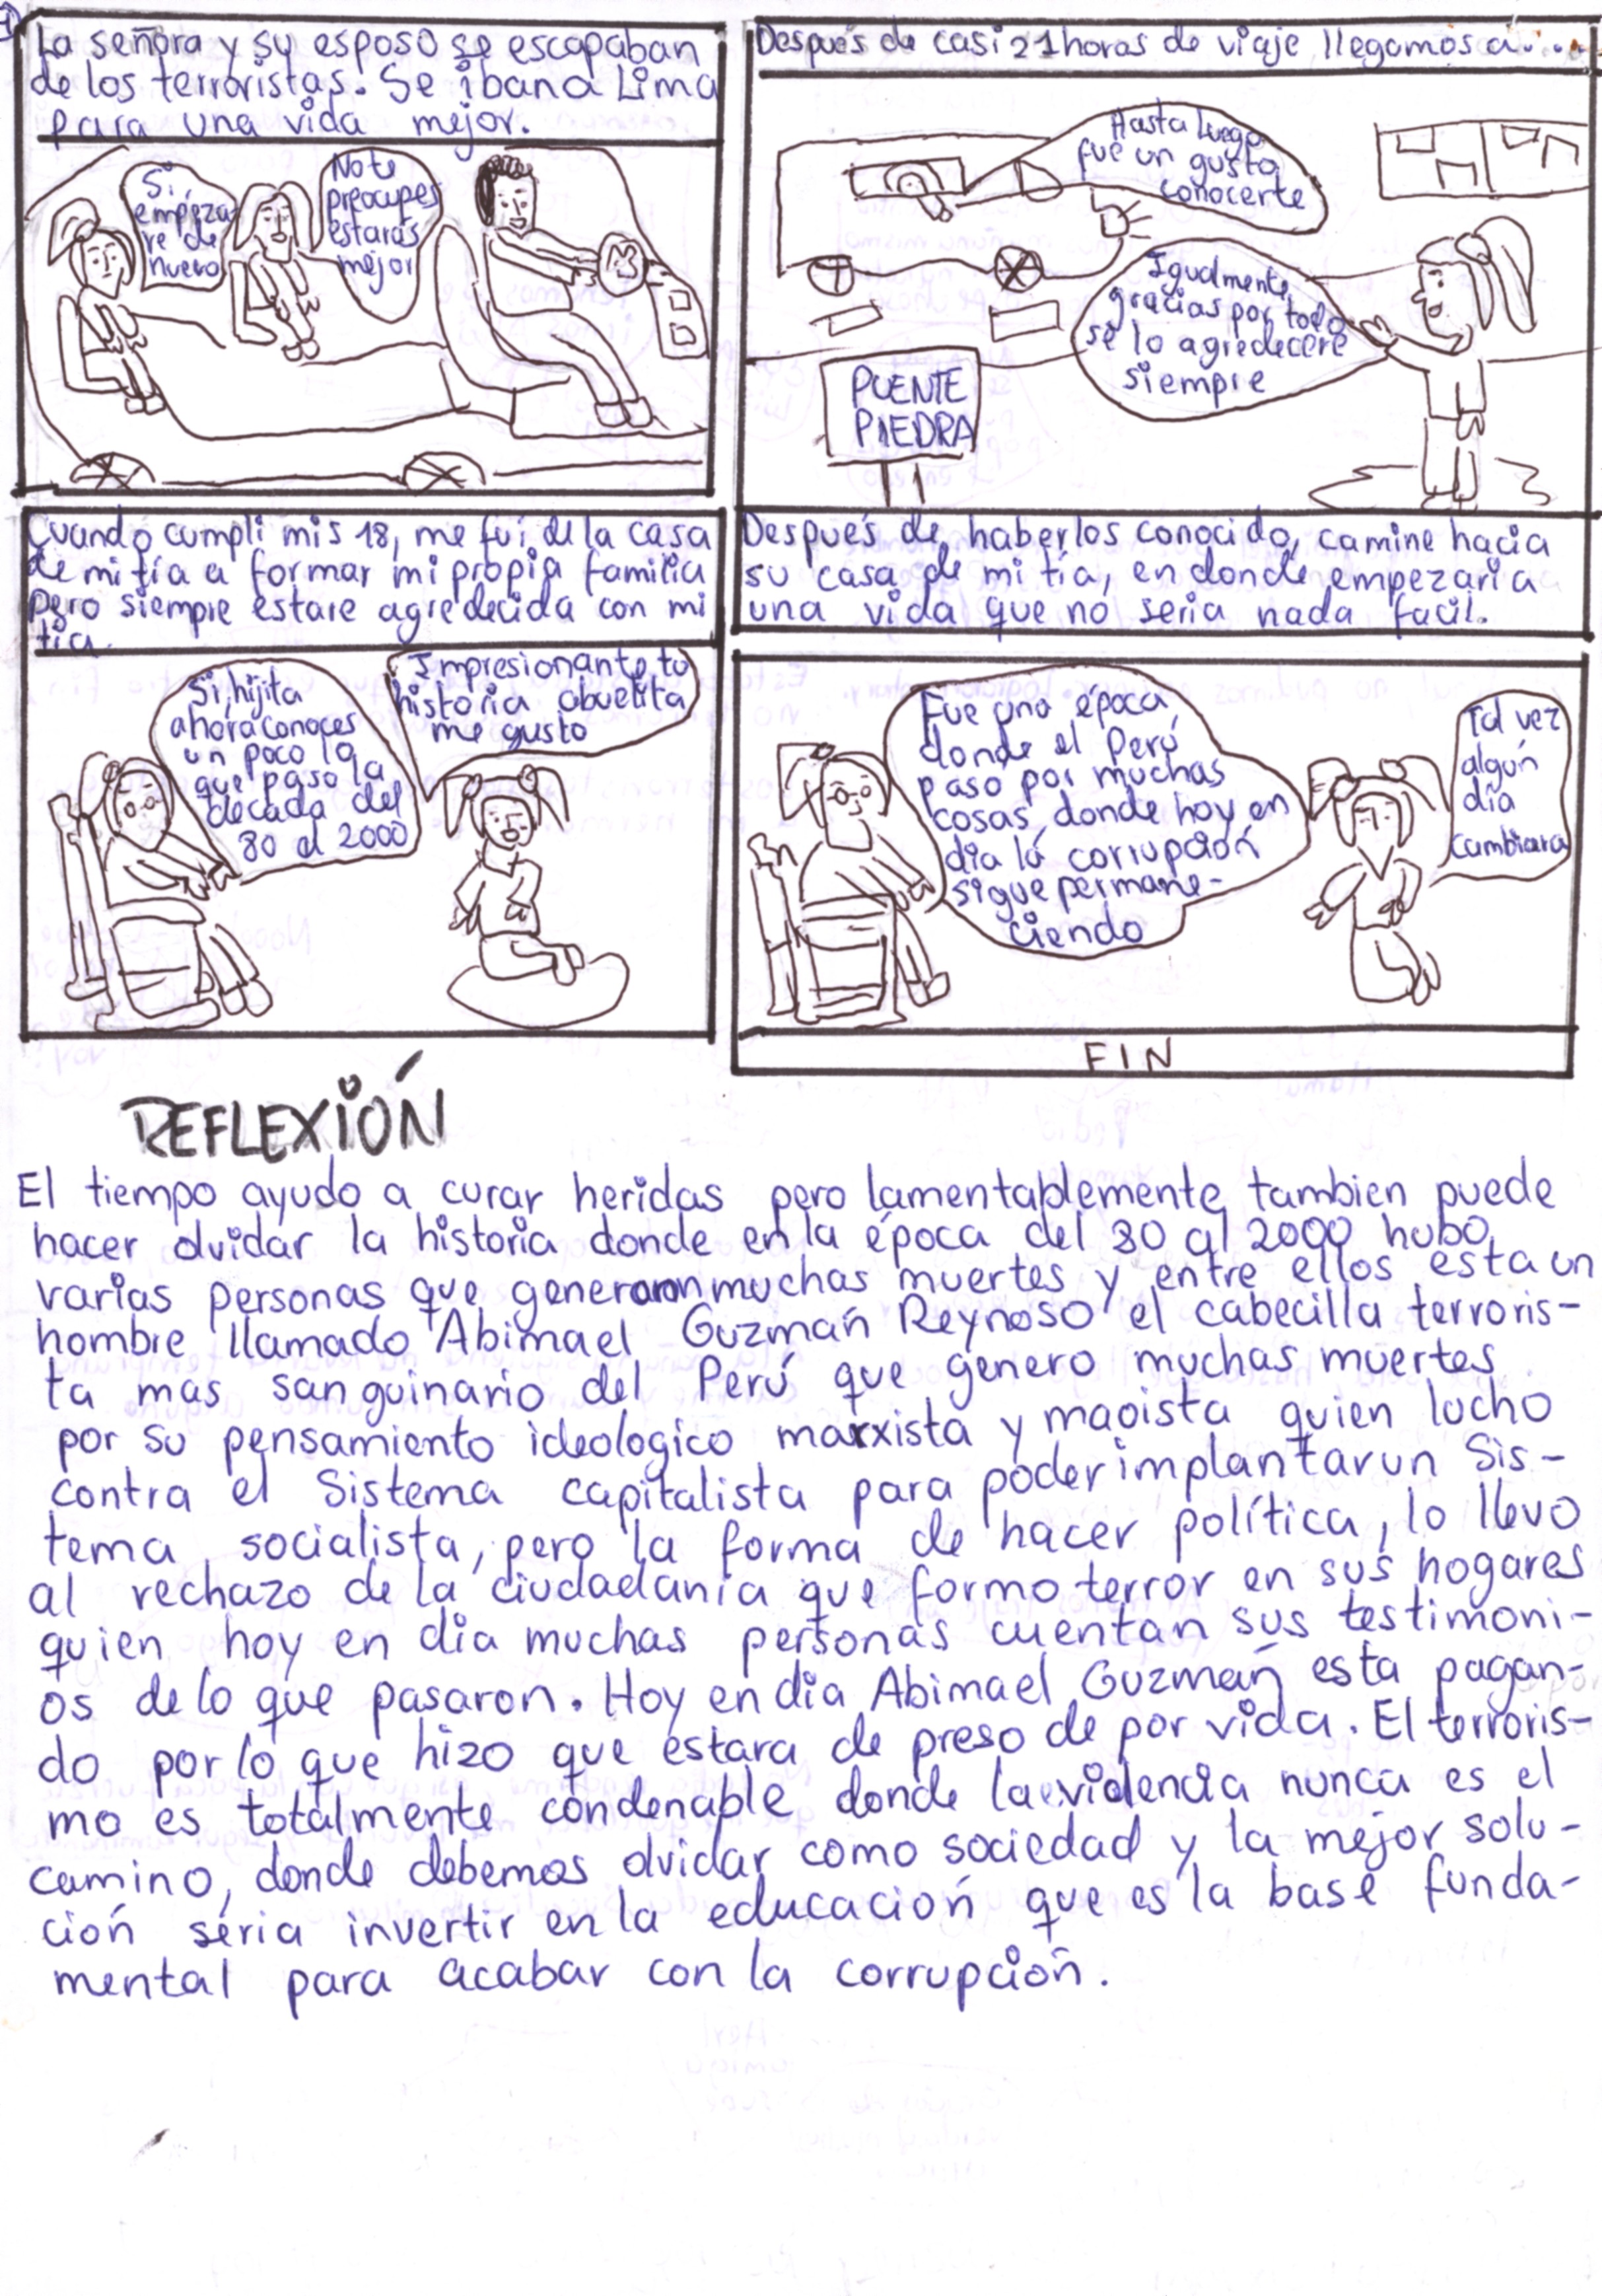 La señora y su esposo se escapaban
de los terroristas. Se iban a Lima
para una vida mejor.
Si,
empeza
re de
nuevo
No te
preocupes
estarás
mejor
Después de casi 21 horas de viaje, llegamos a....
Hasta luego
fue un gusto
conocerte
Igualmente,
gracias por todo
se lo agredecere
siempre
PUENTE
PIEDRA
Cuando cumpli mis 18, me fuí de la casa
de mi tía a formar mi propia familia
pero siempre estare agredecida con mi
tía.
Si, hijita
ahora conoces
un poco lo
que paso la
decada del
80 al 2000
Impresionante tu
historia abuelita
me gusto
Después de haberlos conocido, camine hacia
su casa de mi tía, en donde empezaria
una vida que no seria nada facil.
Fue una época
donde el Perú
paso por muchas
cosas, donde hoy en
dia la corrupción
sigue permane-
ciendo
Tal vez
algún
día
cambiara
FIN
REFLEXIÓN
El tiempo ayudo a curar heridas pero lamentablemente tambien puede
hacer olvidar la historia donde en la época del 80 al 2000 hubo
varias personas que generaron muchas muertes y entre ellos esta un
hombre llamado Abimael Guzmán Reynoso el cabecilla terroris-
ta más sanguinario del Perú que genero muchas muertes
por su pensamiento ideologico marxista y maoista quien lucho
contra el Sistema capitalista para poder implantar un Sis-
tema socialista, pero la forma de hacer política, lo llevo
al rechazo de la ciudadanía que formo terror en sus hogares
quien hoy en dia muchas personas cuentan sus testimoni-
os de lo que pasaron. Hoy en dia Abimael Guzmán esta pagan-
do por lo que hizo que estara de preso de por vida. El terroris-
mo es totalmente condenable donde la violencia nunca es el
camino, donde debemos olvidar como sociedad y la mejor solu-
ción seria invertir en la educación que es la base funda-
mental para acabar con la corrupción.